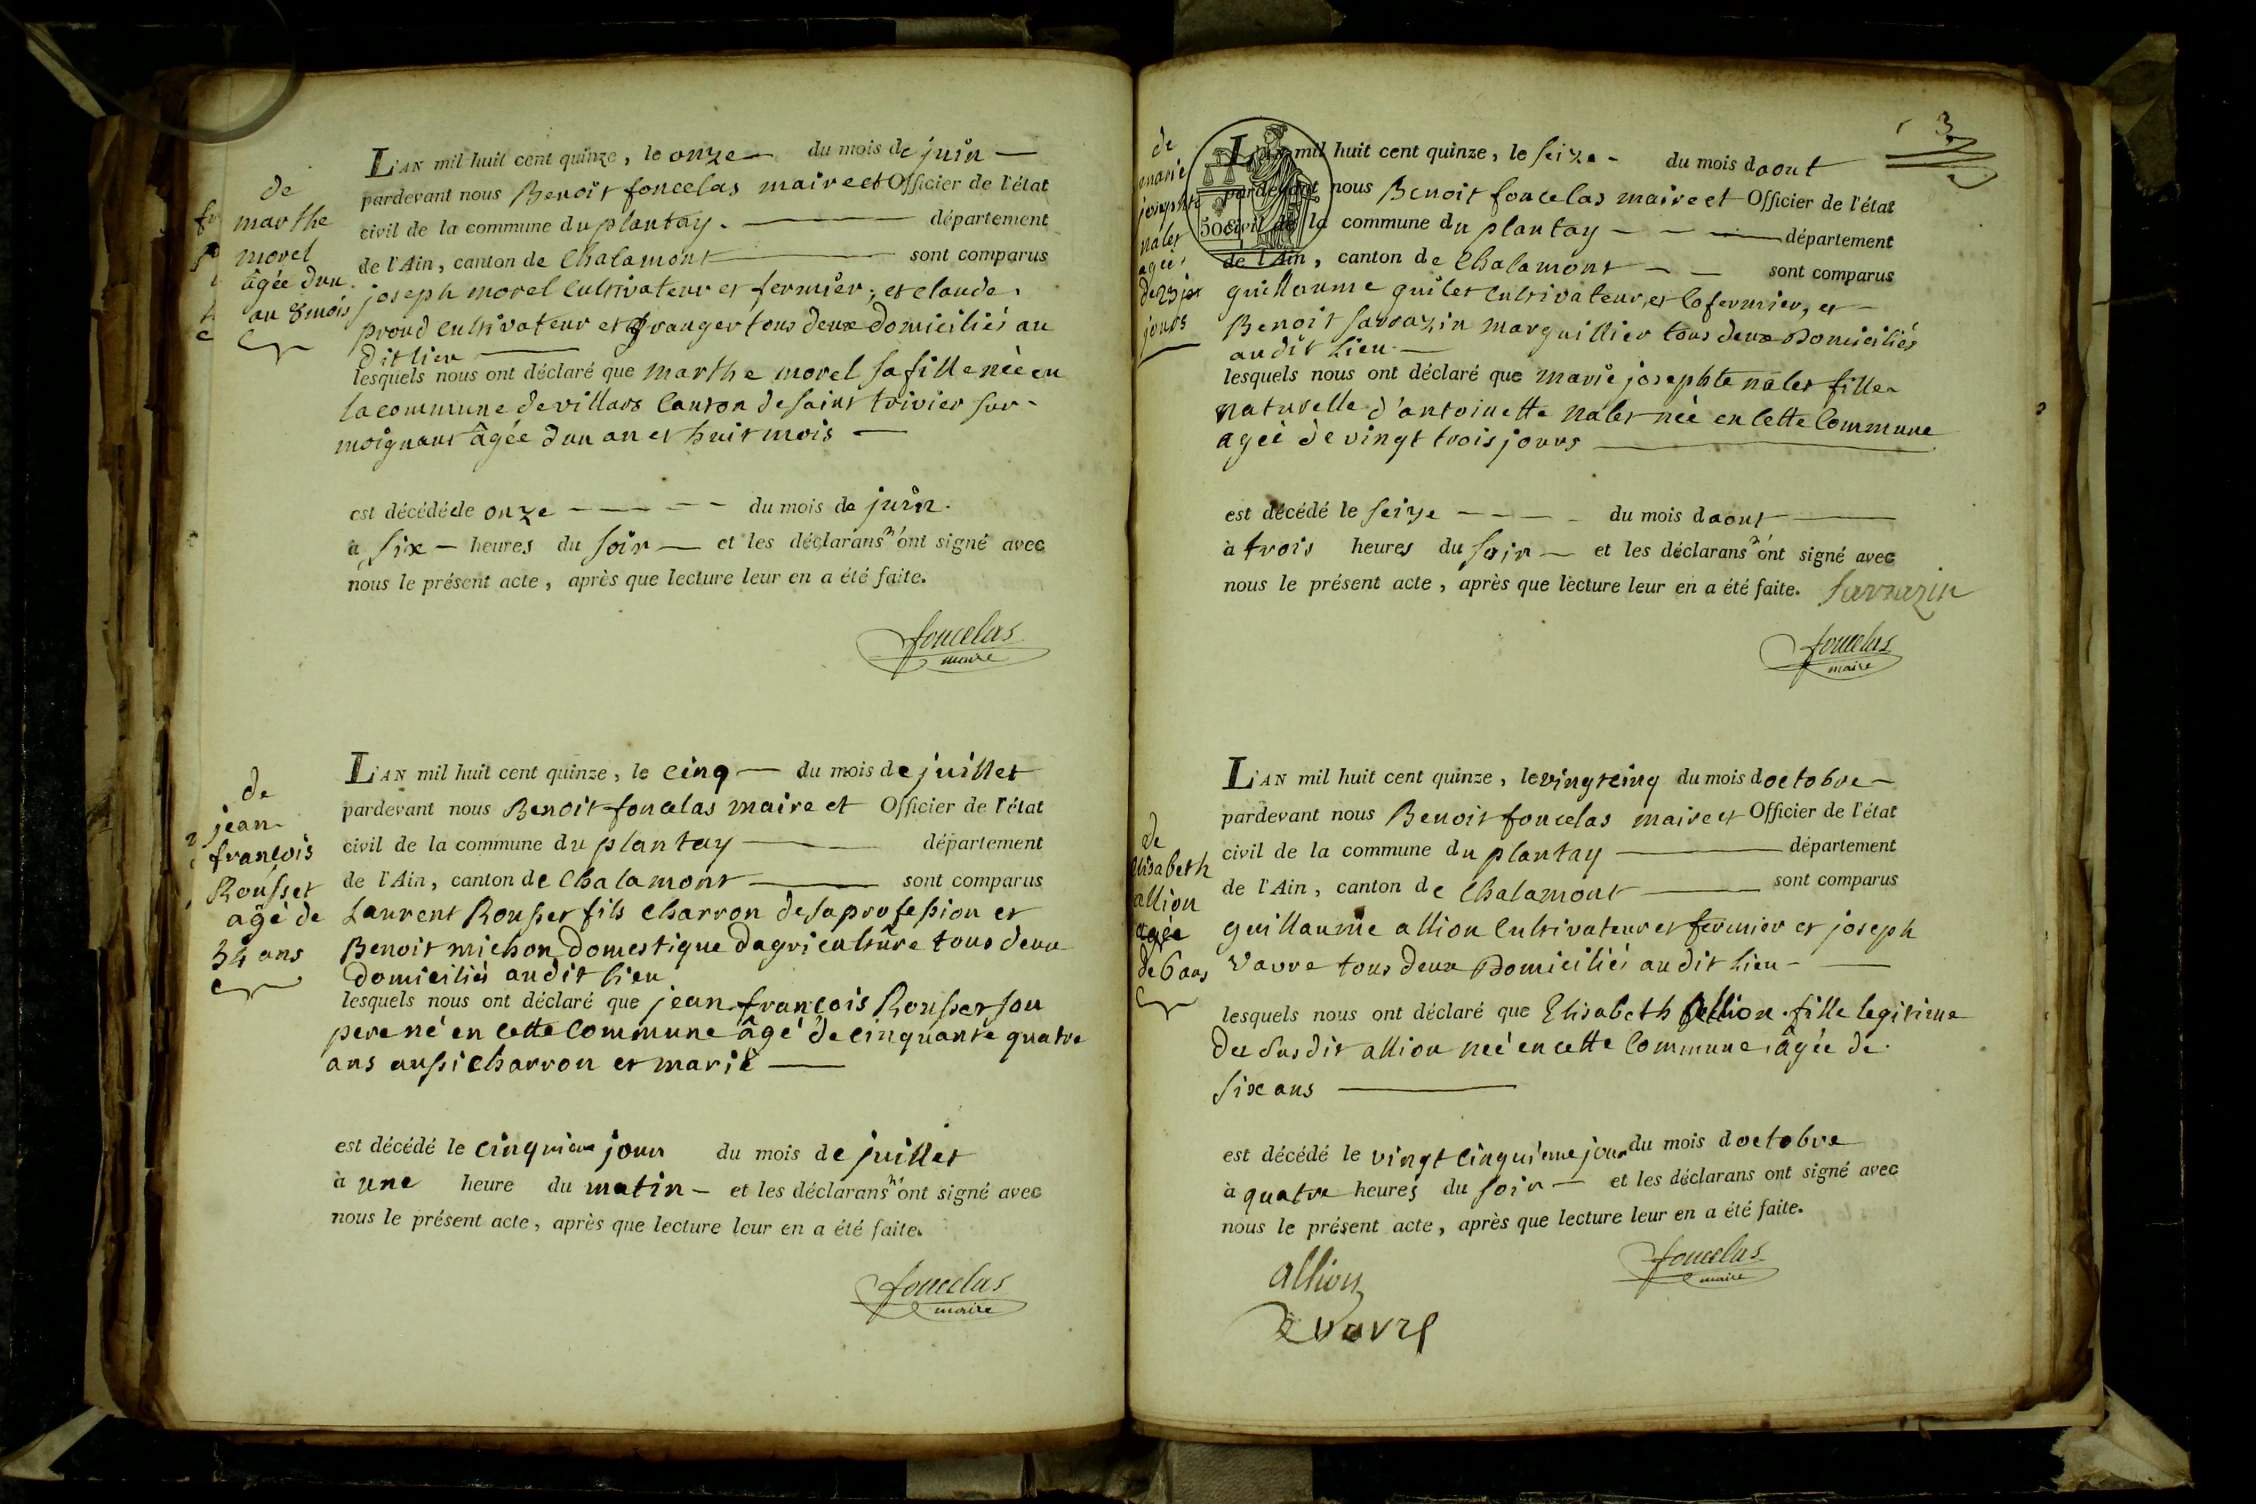 L'AN mil huit cent quinze, le onze du mois de juin
pardevant nous Benoit foncelas maire et Officier de l'état
civil de la commune du plantay. département
de l'Ain, canton de Chalamont sont comparus
joseph morel Cultivateur et fermier, et claude
proud cultivateur et Granger tous deux Domiciliés au
dit lieu
lesquels nous ont déclaré que marthe morel sa fille née en
la commune de villars Canton de saint trivier sur
moignant âgée d'un an et huit mois
est décédé le onze du mois de juin.
à six heures du soir et les déclarans n'ont signé avec
nous le présent acte, après que lecture leur en a été faite.
foncelas
maire
de
marthe
morel
âgée d'un
an 8 mois
L'AN mil huit cent quinze, le cinq du mois de juillet
pardevant nous Benoit foncelas maire et Officier de l'état
civil de la commune du plantay département
de l'Ain, canton de Chalamont sont comparus
Laurent Rousset fils charron de sa profession et
Benoit michon Domestique d'agriculture tous deux
Domiciliés audit lieu
lesquels nous ont déclaré que jean françois Rousset son
pere né en cette Commune âgé de cinquante quatre
ans aussi charron et marié
est décédé le cinquieme jour du mois de juillet
à une heure du matin et les déclarans n'ont signé avec
nous le présent acte, après que lecture leur en a été faite.
foncelas
maire
de
jean
françois
Rousset
âgé de
54 ans
3
L'AN mil huit cent quinze, le seize du mois daout
pardevant nous Benoit foncelas maire et Officier de l'état
civil de la commune du plantay département
de l'Ain, canton de Chalamont sont comparus
guillaume quilet cultivateur, et cofermier, et
Benoit sarrazin marguillier tous deux Domiciliés
audit lieu
lesquels nous ont déclaré que marie josephte nalet fille
naturelle d'antoinette nalet née en cette Commune
agée de vingt trois jours
est décédé le seize du mois daout
à trois heures du soir et les déclarans n'ont signé avec
nous le présent acte, après que lecture leur en a été faite. Sarrazin
foncelas
maire
de
marie
josephte
nalet
agée
de 23
jours
50c
L'AN mil huit cent quinze, le vingt cinq du mois doctobre
pardevant nous Benoit foncelas maire et Officier de l'état
civil de la commune du plantay département
de l'Ain, canton de Chalamont sont comparus
guillaume allion Cultivateur et fermier et joseph
vavre tous deux Domiciliés audit lieu
lesquels nous ont déclaré que Elisabeth allion fille legitime
du susdit allion née en cette Commune, âgée de
six ans
est décédé le vingt cinquieme jour du mois doctobre
à quatre heures du soir et les déclarans ont signé avec
nous le présent acte, après que lecture leur en a été faite.
foncelas
maire
allion
vavre
de
elisabeth
allion
agée
de 6 ans